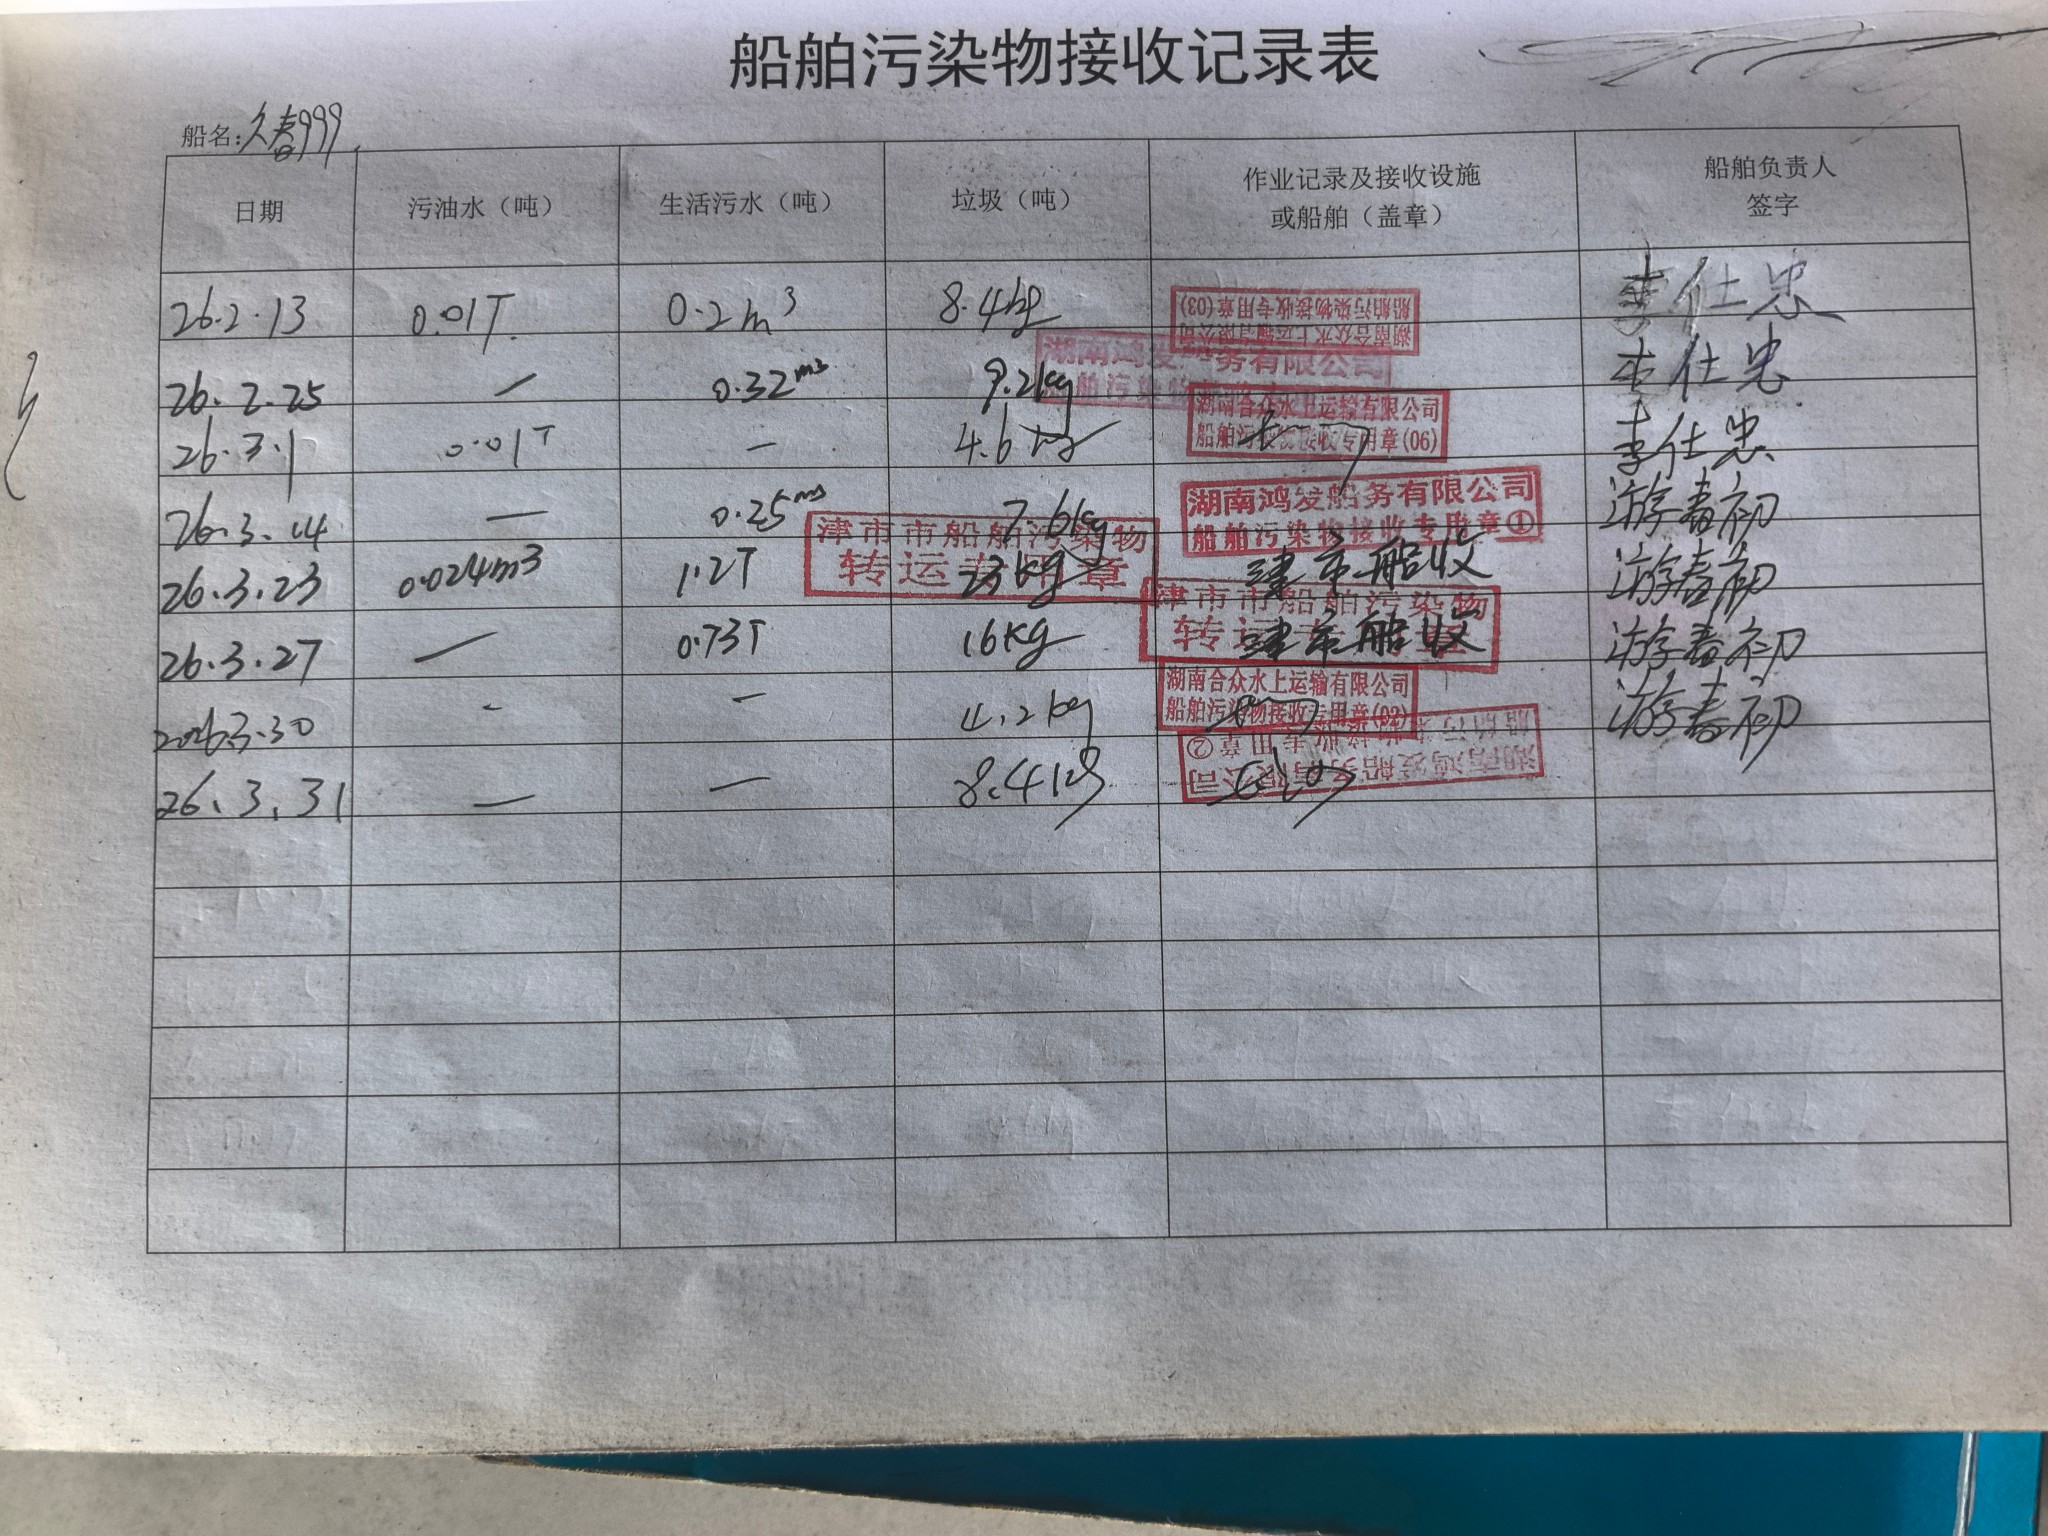 船舶污染物接收记录表
船名：久春999
日期 污油水（吨） 生活污水（吨） 垃圾（吨） 作业记录及接收设施或船舶（盖章） 船舶负责人签字
26.2.13 0.01T 0.2m³ 8.4kg 湖南合众水上运输有限公司 船舶污染物接收专用章(03) 李仕忠
26.2.25 — 0.32m³ 9.2kg 湖南鸿发船务有限公司 李仕忠
26.3.1 0.01T — 4.6kg 湖南合众水上运输有限公司 船舶污染物接收专用章(06) 李仕忠
26.3.14 — 0.25m³ 7.6kg 湖南鸿发船务有限公司 船舶污染物接收专用章① 游春初
26.3.23 0.024m3 1.2T 23kg 津市市船舶污染物 转运专用章 津市船收 游春初
26.3.27 — 0.73T 16kg 津市市船舶污染物 转运专用章 津市船收 游春初
2026.3.30 - — 4.2kg 湖南合众水上运输有限公司 船舶污染物接收专用章(03) 游春初
26.3.31 — — 8.4kg 湖南鸿发船务有限公司 船舶污染物接收专用章②